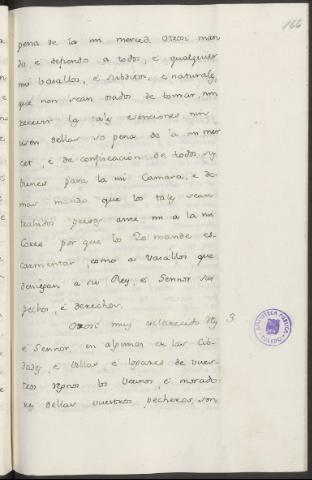 166
pena de la mi merced. Otrosi man
do, e defiendo a todos, e qualquier
mis vasallos, e subditos, e naturales,
que non sean osados de tomar, nin
recevir las tales esenciones, nin
usen dellas so pena de la mi mer
cet, e de confiscacion de todos sus
bienes para la mi Camara, e de-
mas mando que los tales sean
trahidos presos ante mi a la mi
Corte por que los Yo mande es-
carmentar, como a vasallos que
deniegan a su Rey, e Sennor sus
pechos, e derechos.
Otrosi muy esclarecido Rey 3
e Sennor, en algunas de las Cib-
dades, e villas, e logares de vues-
tros regnos los vecinos, e morado
res dellas vuestros pecheros, son
BIBLIOTECA PUBLICA
TOLEDO